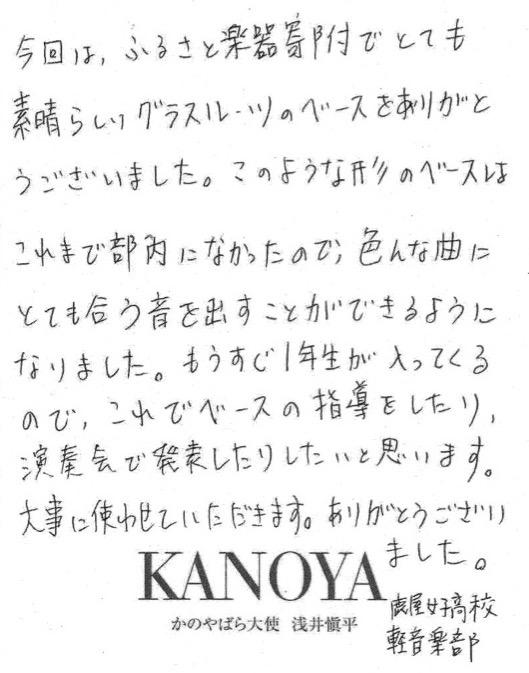 今回は、ふるさと楽器寄附でとても
素晴らしいグラスルーツのベースをありがと
うございました。このような形のベースは
これまで部内になかったので、色んな曲に
とても合う音を出すことができるように
なりました。もうすぐ1年生が入ってくる
ので、これでベースの指導をしたり、
演奏会で発表したりしたいと思います。
大事に使わせていただきます。ありがとうござい
ました。
KANOYA
かのやばら大使 浅井愼平
鹿屋女子高校
軽音楽部